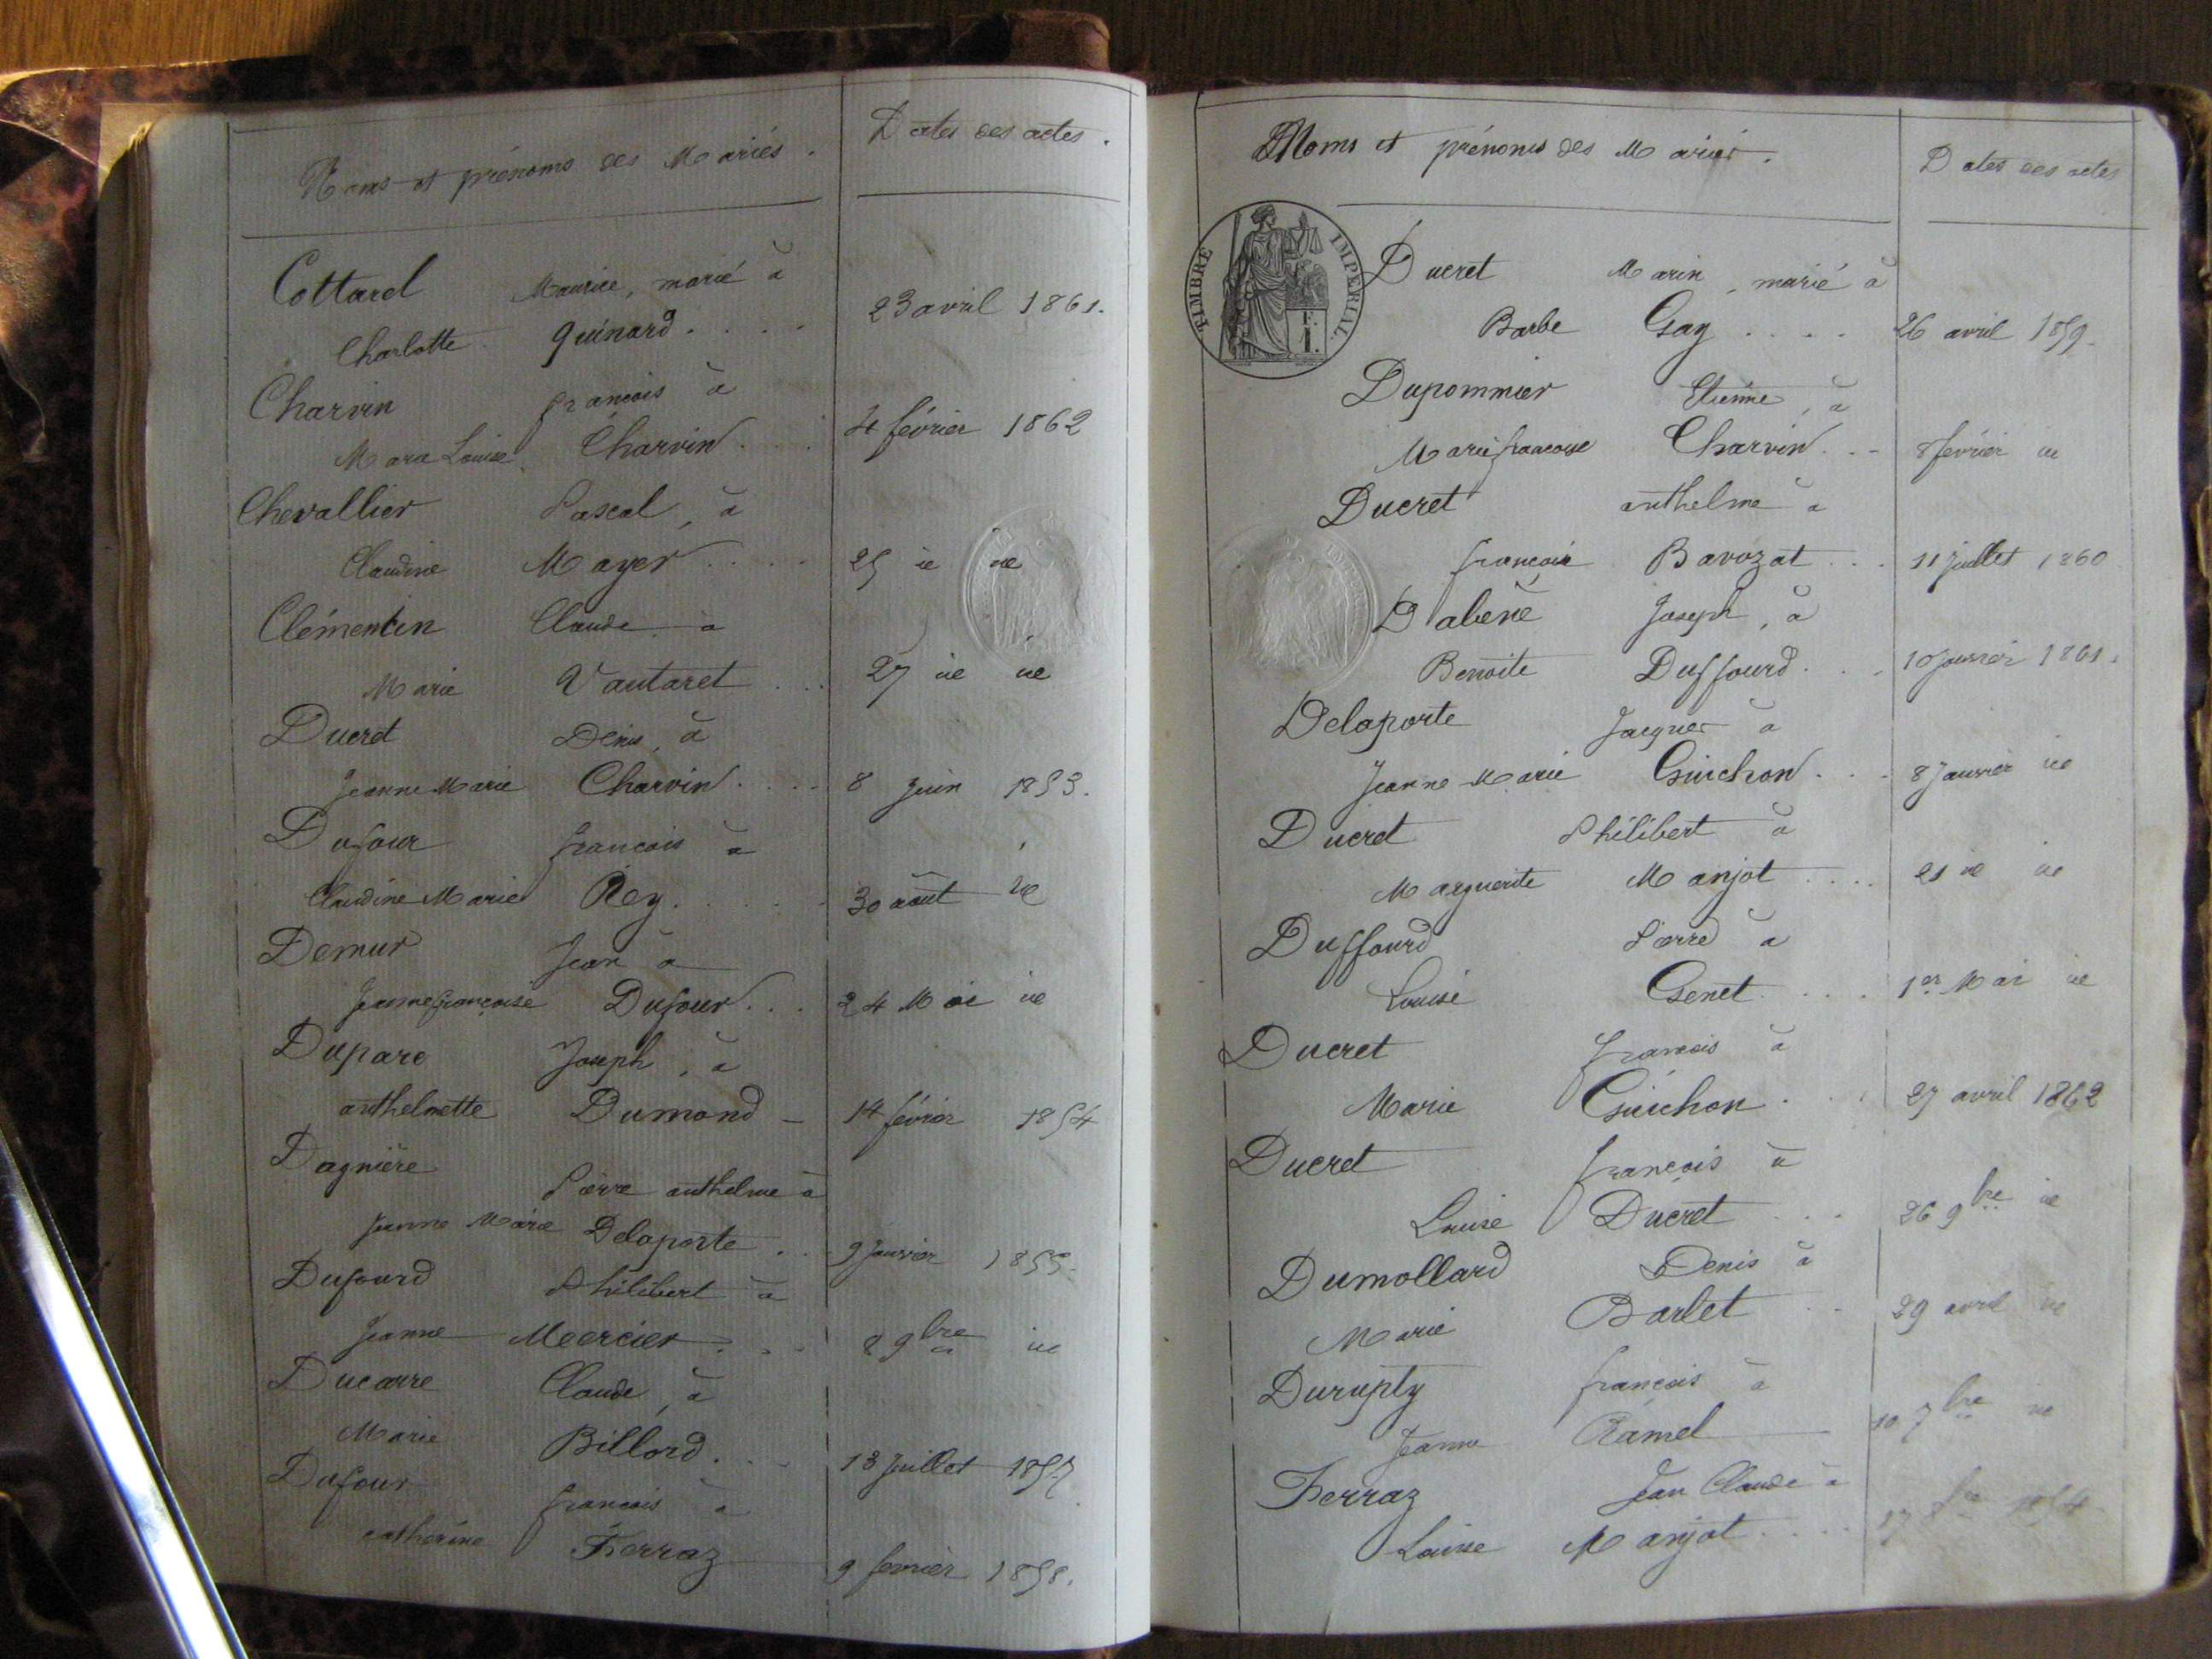 Noms et prénoms des Mariés. Dates des actes.
Cottarel Maurice, marié à
Charlotte Guinard .... 23 avril 1861.
Charvin françois à
Marie Louise Charvin ... 4 février 1862
Chevallier Pascal, à
Claudine Mayer .... 25 ie ie
Clémentin Claude à
Marie Vautaret ... 27 ie ie
Ducret Denis, à
Jeanne Marie Charvin .... 8 Juin 1853.
Dufour francois à
Claudine Marie Rey ..... 30 août ie
Demur Jean à
Jeanne françoise Dufour ... 24 Mai ie
Duparc Joseph, à
anthelmette Dumond - 14 février 1854
Dagnière
Pierre anthelme à
Jeanne Marie Delaporte .. 9 Janvier 1855.
Dufourd Philibert à
Jeanne Mercier ... 8 9bre ie
Ducarre Claude, à
Marie Billord ... 13 Juillet 1857.
Dufour francois à
catherine Ferraz 9 fevrier 1858.
Noms et prénoms des Mariés. Dates des actes
TIMBRE IMPERIAL
F.
1.
Ducret Marin, marié à
Barbe Gay .... 26 avril 1859.
Dupommier Etienne, à
Marie francoise Charvin .. 8 février ie
Ducret anthelme à
françoise Bavozat ... 11 Juillet 1860
Dabène Joseph, à
Benoite Duffourd ... 10 Janvier 1861.
Delaporte Jacques à
Jeanne Marie Guichon ... 8 Janvier ie
Ducret Philibert à
Marguerite Manjot .... 21 ie ie
Duffourd Pierre à
Louise Genet .... 1er Mai ie
Ducret francois à
Marie Guichon ... 27 avril 1862
Ducret françois à
Louise Ducret ... 26 9bre ie
Dumollard Denis à
Marie Barlet .. 29 avril ie
Durupty françois à
Jeanne Ramel 10 7bre ie
Ferraz Jean Claude à
Louise Manjot .... 27 1854